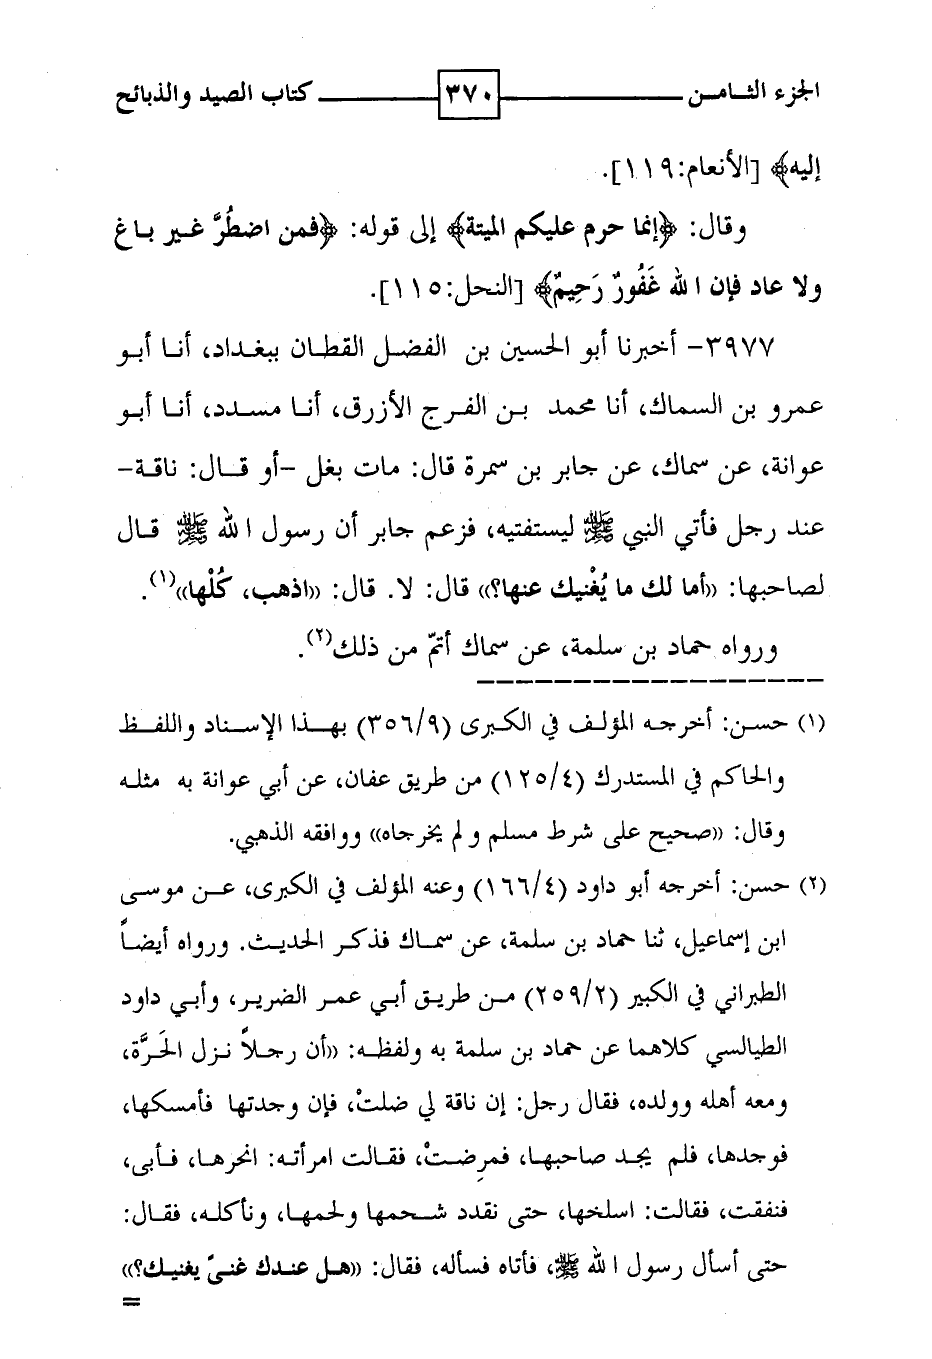 الجزء الثامن ٣٧٠ كتاب الصيد والذبائح
إليه﴾ [الأنعام:١١٩].
وقال: ﴿إنما حرم عليكم الميتة﴾ إلى قوله: ﴿فمن اضطُرَّ غير باغ
ولا عاد فإن الله غَفُورٌ رَحِيمٌ﴾ [النحل:١١٥].
٣٩٧٧- أخبرنا أبو الحسين بن الفضل القطان ببغداد، أنا أبو
عمرو بن السماك، أنا محمد بن الفرج الأزرق، أنا مسدد، أنا أبو
عوانة، عن سماك، عن جابر بن سمرة قال: مات بغل -أو قال: ناقة-
عند رجل فأتي النبي ﷺ ليستفتيه، فزعم جابر أن رسول الله ﷺ قال
لصاحبها: «أما لك ما يُغْنيك عنها؟» قال: لا. قال: «اذهب، كُلْها»(١).
ورواه حماد بن سلمة، عن سماك أتمّ من ذلك(٢).
(١) حسن: أخرجه المؤلف في الكبرى (٣٥٦/٩) بهذا الإسناد واللفظ
والحاكم في المستدرك (١٢٥/٤) من طريق عفان، عن أبي عوانة به مثله
وقال: «صحيح على شرط مسلم و لم يخرجاه» ووافقه الذهبي.
(٢) حسن: أخرجه أبو داود (١٦٦/٤) وعنه المؤلف في الكبرى، عن موسى
ابن إسماعيل، ثنا حماد بن سلمة، عن سماك فذكر الحديث. ورواه أيضاً
الطبراني في الكبير (٢٥٩/٢) من طريق أبي عمر الضرير، وأبي داود
الطيالسي كلاهما عن حماد بن سلمة به ولفظه: «أن رجلاً نزل الحَرَّة،
ومعه أهله وولده، فقال رجل: إن ناقة لي ضلتْ، فإن وجدتها فأمسكها،
فوجدها، فلم يجد صاحبها، فمرضتْ، فقالت امرأته: انحرها، فأبى،
فنفقت، فقالت: اسلخها، حتى نقدد شحمها ولحمها، ونأكله، فقال:
حتى أسأل رسول الله ﷺ، فأتاه فسأله، فقال: «هل عندك غنىً يغنيك؟»
=